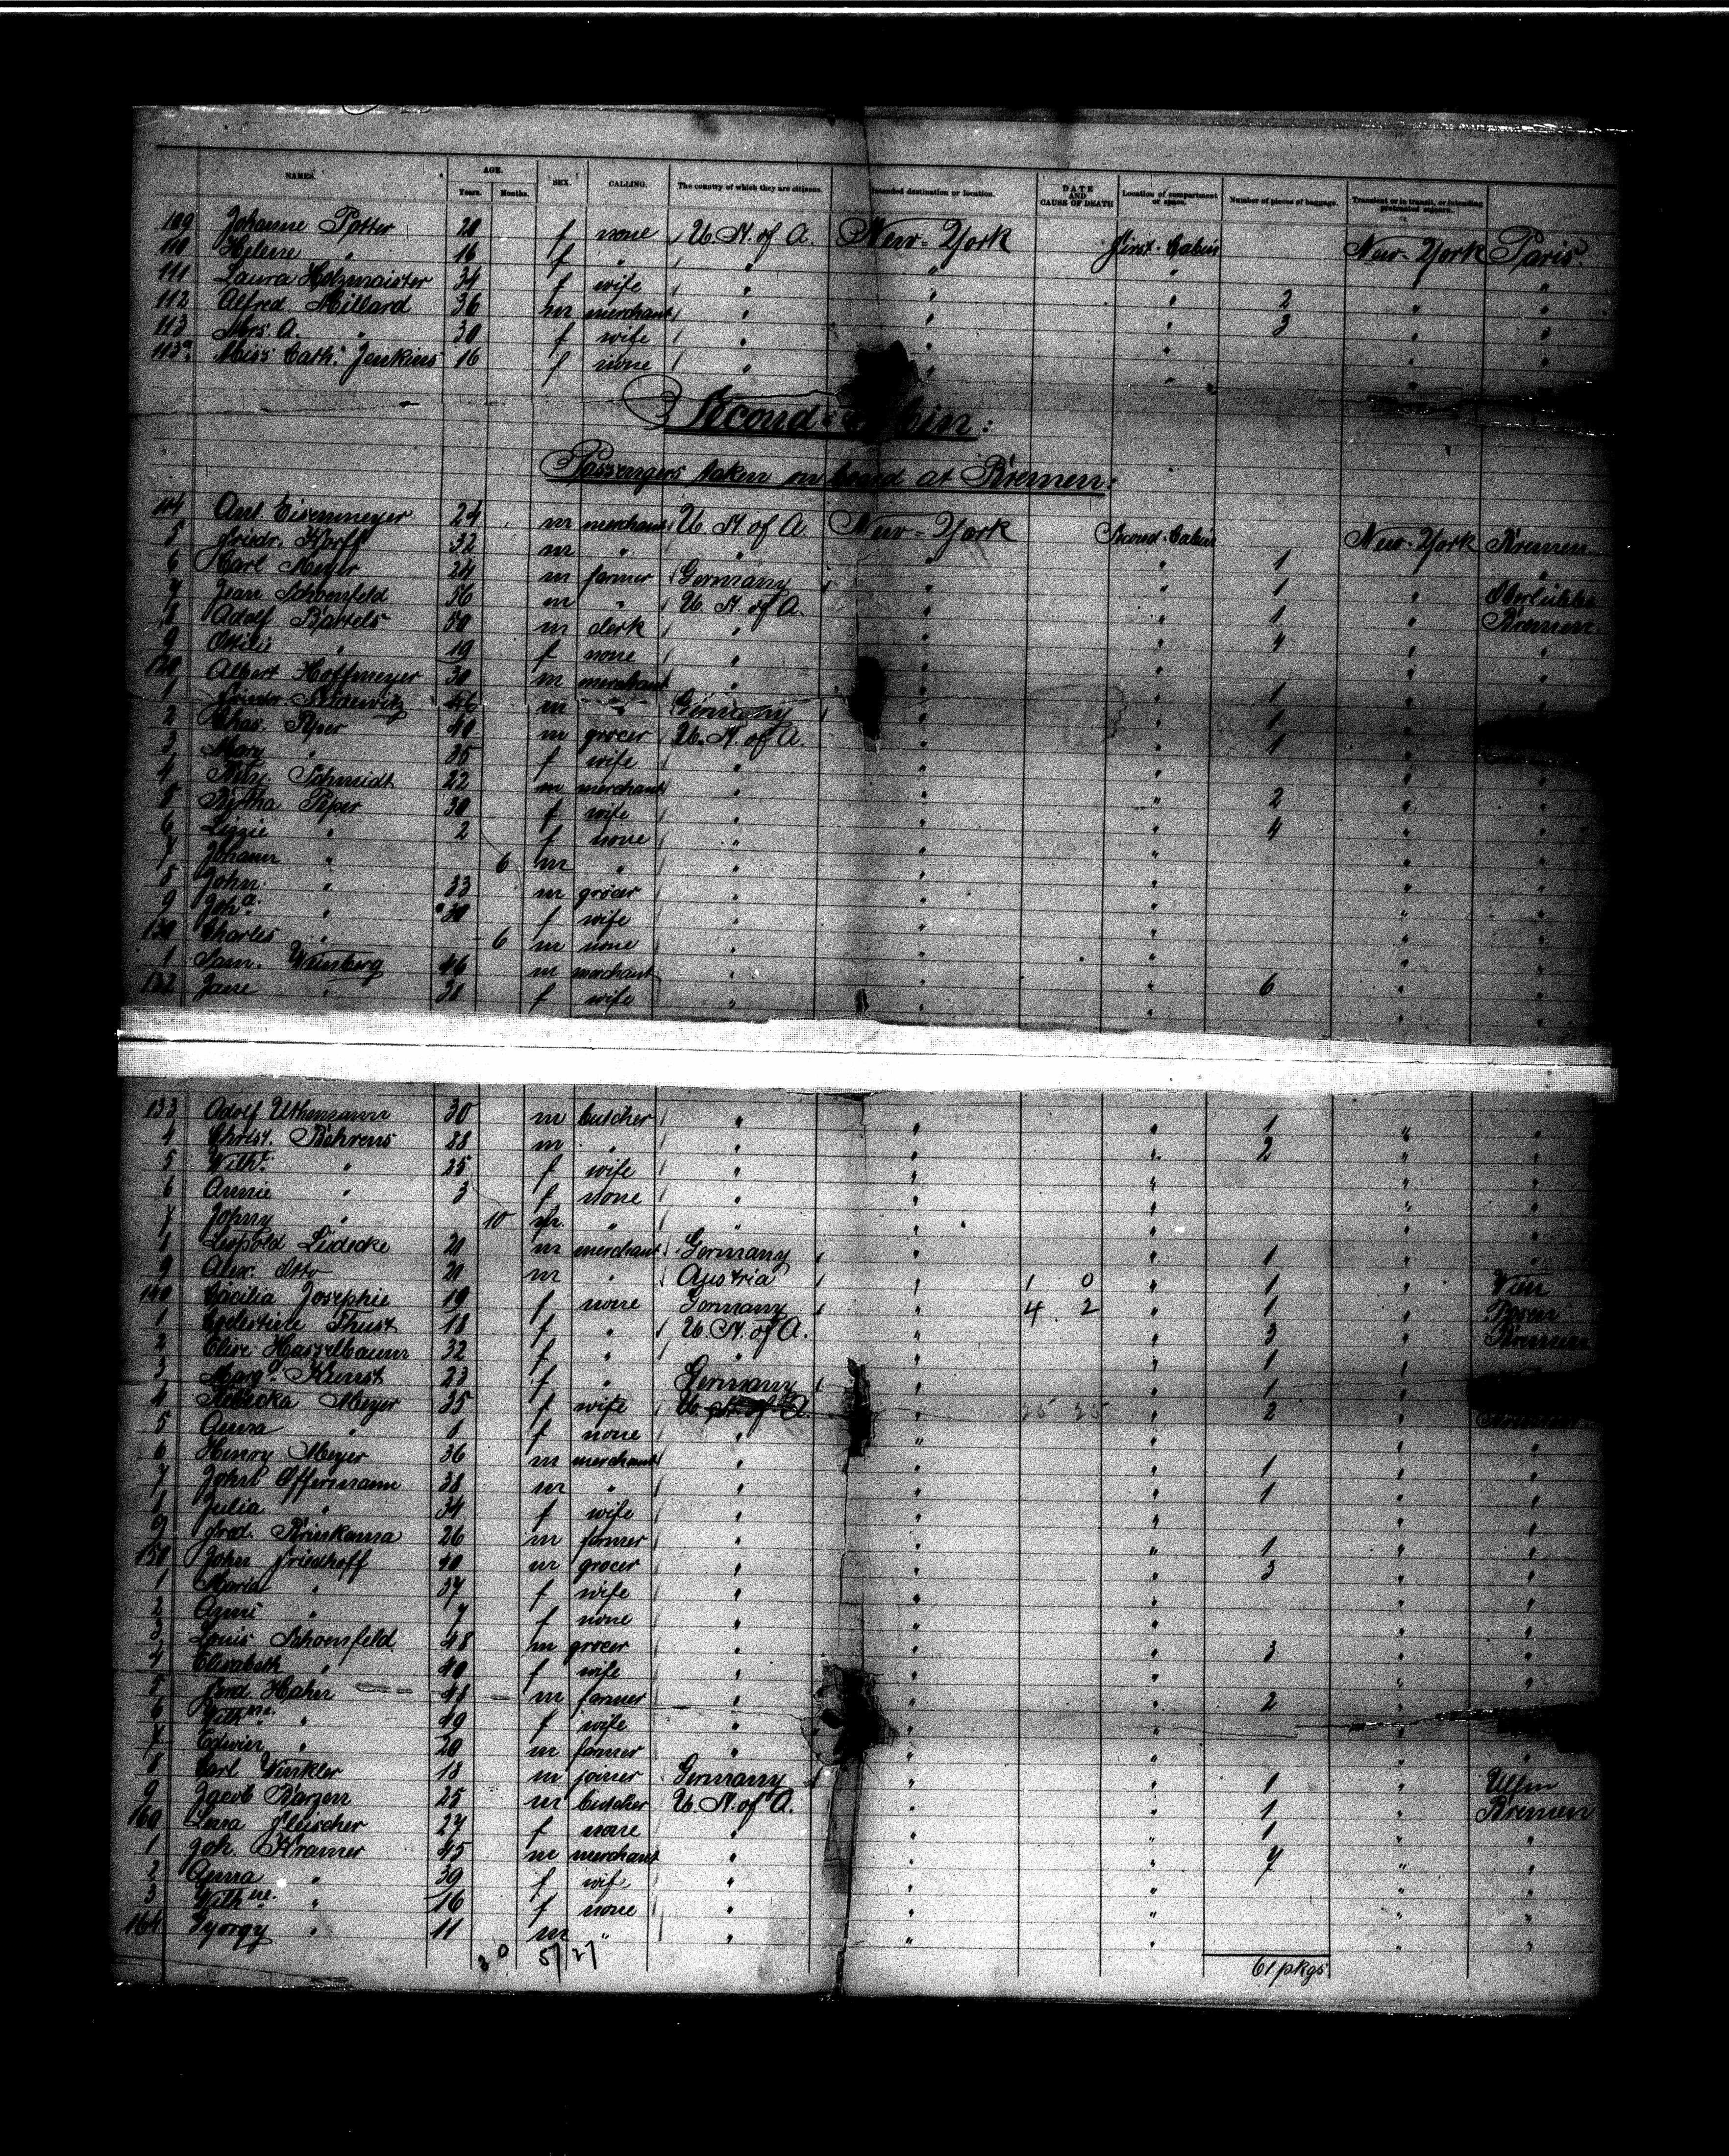 NAMES. AGE. Years. Months. SEX. CALLING. The country of which they are citizens. Intended destination or location. DATE AND CAUSE OF DEATH Location of compartment or space. Number of pieces of baggage. Transient or in transit, or intending protracted sojourn.
109 Johanne Potter 20 f none U. St. of A. New-York first-Cabin New-York Paris.
110 Helene " 16 f " " " " " "
111 Laura Holzmaister 34 f wife " " " 2 " "
112 Alfred Millard 36 m merchant " " " 3 " "
113 Mrs. A. " 30 f wife " " " " "
113a Miss Cath. Jenkins 16 f none " " " "
Second-Cabin:
Passengers taken on board at Bremen:
114 Eisenmeyer 24 m merchant U. St. of A. New-York Second-Cabin New-York Bremen
5 Friedr. Korff 32 m " " " " 1 " "
6 Carl Meyer 24 m farmer Germany " " 1 "
7 Jean Schoenfeld 56 m " U. St. of A. " " 1 " Bremen.
8 Adolf Bartels 50 m clerk " " " 4 " "
9 Ottilie " 19 f none " " " " "
120 Albert Hoffmeyer 30 m merchant " " " 1 " "
1 Friedr. 46 m " Germany " " 1 "
2 Chas. Piper 40 m grocer U. St. of A. " " 1 "
3 Mary " 35 f wife " " " " "
4 Schmidt 22 m merchant " " " 2 " "
5 Bertha Peper 30 f wife " " " 4 " "
6 Lizzie " 2 f none " " " " "
7 Johann " 6 m " " " " " "
8 John " 33 m grocer " " " " "
9 Joha. " 30 f wife " " " " "
130 Charles " 6 m none " " " " "
1 Sam. Weinberg 46 m merchant " " " 6 " "
132 Jane " 38 f wife " " " " "
133 Adolf Uthemann 30 m butcher " " " 1 " "
4 Christ. Behrens 28 m " " " " 2 " "
5 Wilh. " 25 f wife " " " " "
6 Annie " 3 f none " " " " "
7 Johny " 10 m. " " " " " "
8 Leopold Lüdecke 21 m merchant Germany " " 1 " "
9 Alex. Otto 21 m " Austria " 1 0 " 1 " Wien
140 Cäcilia Josephie 19 f none Germany " 4 2 " 1 " Posen
1 Celestine Thust 18 f " U. St. of A. " " 3 " Bremen
2 Elise Hasselbaum 32 f " " " " 1 "
3 Marga. Kunst 23 f " Germany " " 1 "
4 Rebecka Meyer 35 f wife U. St. of A. " 25 25 " 2 "
5 Anna " f none " " " " "
6 Henry Meyer 36 m merchant " " " 1 " "
7 John Offermann 38 m " " " " 1 " "
8 Julia " 34 f wife " " " " "
9 Fred. Brinkama 26 m farmer " " " 1 " "
150 John Friedhoff 40 m grocer " " " 3 " "
1 Maria " 37 f wife " " " " "
2 Anni " 7 f none " " " " "
3 Louis Schoenfeld 48 m grocer " " " 3 " "
4 Elisabeth " 40 f wife " " " " "
5 Ferd. Hahn 48 m farmer " " " 2 " "
6 Wilhne. " 49 f wife " " " "
7 Edwin " 20 m farmer " " " " "
8 Carl Winkler 18 m joiner Germany " " 1 "
9 Jacob Barzen 25 m butcher U. St. of A. " " 1 " Bremen
160 Lena Fleischer 27 f none " " " 1 " "
1 Joh. Kramer 45 m merchant " " " 7 " "
2 Anna " 39 f wife " " " " "
3 Wilhne. " 16 f none " " " " "
164 György " 11 m " " " " " "
61 pkgs